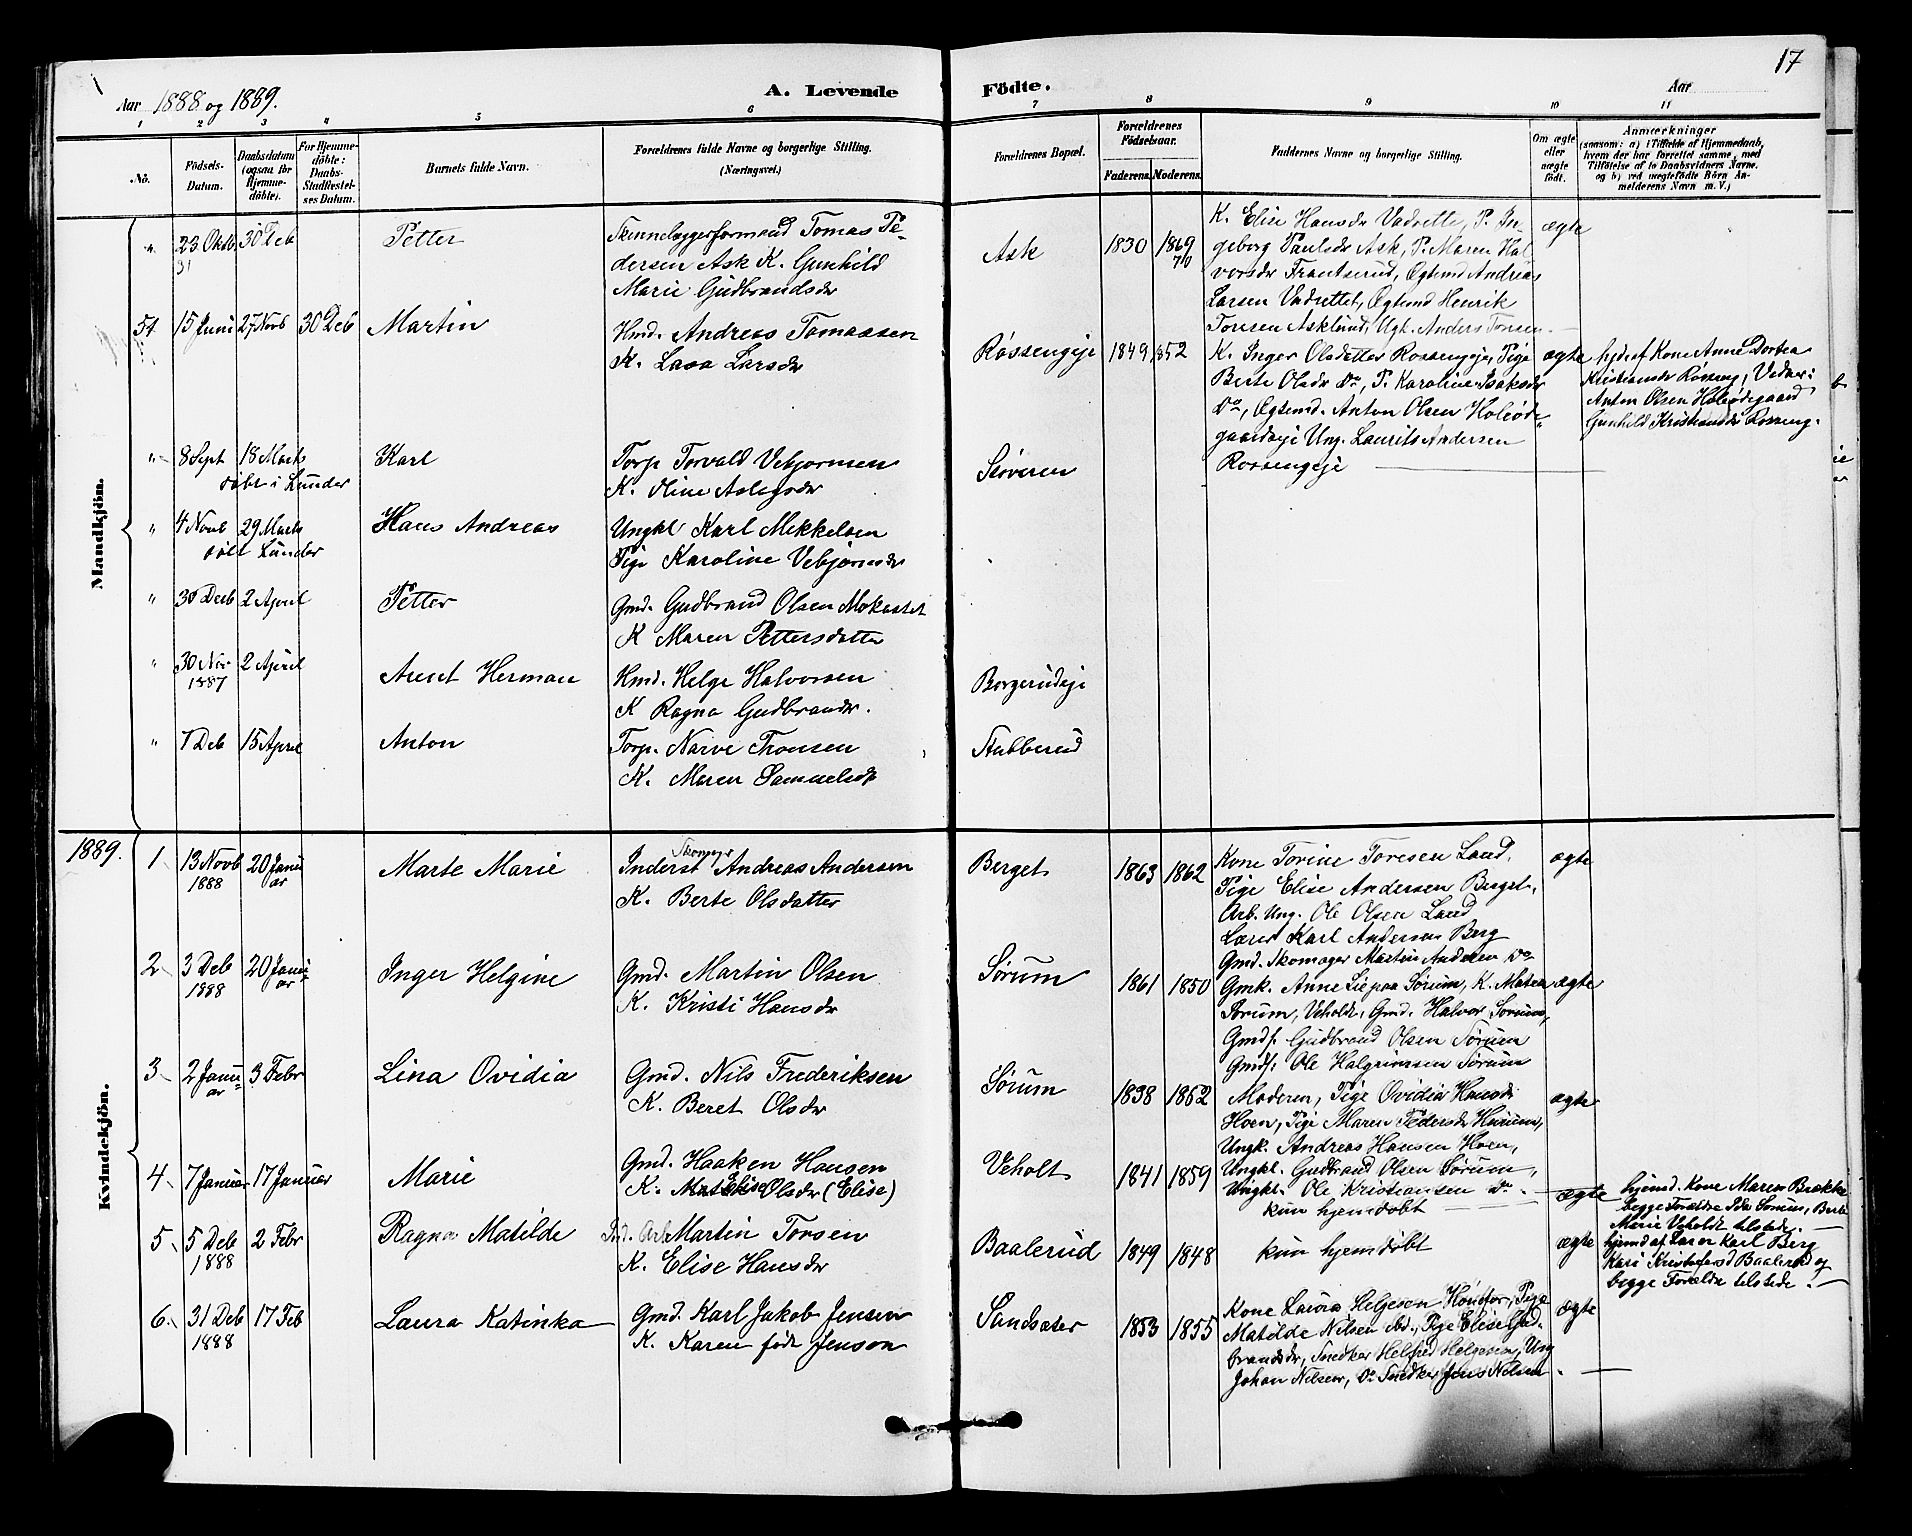 17
Aar 1888 og 1889.
A. Levende Födte.
Aar
1 2 3 4 5 6 7 8 9 10 11
No.
Födsels-Datum.
Daabsdatum (ogsaa for Hjemme-döbte).
For Hjemme-döbte: Daabs-Stadfæstelses Datum.
Barnets fulde Navn.
Forældrenes fulde Navne og borgerlige Stilling. (Næringsvei.)
Forældrenes Bopæl.
Forældrenes Födselsaar.
Faderens. Moderens.
Faddernes Navne og borgerlige Stilling.
Om ægte eller uægte födt.
Anmærkninger
(saasom: a) i Tilfælde af Hjemmedaab,
hvem der har forrettet samme, med
Tilföielse af to Daabsvidners Navne,
og b) ved uegtefödte Börn An-
melderens Navn m. V.)
Mandkjön.
23 Oktb 30 Deb
Petter
Skinnelæggerformand Tomas Pe-
dersen Ask K. Gunhild
Marie Gudbrandsdr
Ask
1830 1869
70
K. Elise Hansdr Vadrette, P. In-
geborg Paulsdr Ask, P. Maren Hal-
vorsdr Frantserud, Ægtemd Andreas
Larsen Vadrettet, Ægtemd Henrik
Toresen Asklund, Ugk. Anders Torsen
ægte
51 15 Juni 27 Novb 30 Deb
Martin
Hmd. Andreas Tomassen
K. Lasa Larsdr
Røssengeje
1849 1852
K. Inger Olsdatter Rossengeje, Pige
Berte Olsdr Do, P. Karoline Isaksdr
Do, Ægtemd. Anton Olsen Holeøde-
gaardeje Ung. Laurits Andersen
Rossengeje
ægte
hjd. af Kone Anne Dortea
Kristiansdr Røsseng, Vidner:
Anton Olsen Holeødegaard
Gunhild Kristiansdr Rosseng.
" 8 Sept 18 Marts
døbt i Lunder
Karl
Torp. Torvald Vebjørnsen
K. Oline Aslegsdr
Støveren
" 4 Novb 29 Marts
døbt Lunder
Hans Andreas
Ungkl Karl Mikkelsen
Pige Karoline Vebjørnsdr
" 30 Deb 2 April
Petter
Gmd. Gudbrand Olsen Mokastet
K Maren Pettersdatter
" 30 Nov 2 April
1887
Anet Herman
Hmd. Helge Halvorsen
K Ragna Gudbrandsdr.
Borgerudeje
" 1 Deb 15 April
Anton
Torp. Narve Tronsen
K. Maren Samuelsdr
Stubberud
1889.
Kvindekjön.
1 13 Novb 20 Janu
1888 ar
Marte Marie
Skomager
Inderst Andreas Andersen
K. Berte Olsdatter
Berget
1863 1862
Kone Torine Toresen Land.
Pige Elise Andersen Berget.
Arb. Ung. Ole Olsen Land
Lærer Karl Andersen Berg
Gmd. Skomager Martin Andersen Do
ægte
2 3 Deb 20 Janu
1888 ar
Inger Helgine
Gmd. Martin Olsen
K. Kristi Hansdr
Sørum
1861 1850
Gmk. Anne Sørum, K. Matea
Sørum, Veholdt, Gmd. Halvor Sørum,
Gmdf. Gudbrand Olsen Sørum
Gmdf: Ole Halgrimsen Sørum
ægte
3 2 Janu 3 Febr
ar
Lina Ovidia
Gmd. Nils Frederiksen
K. Beret Olsdr
Sørum
1838 1862
Moderen, Pige Ovidia Hansdr
Hoen, Pige Maren Pedersdr Hurum,
Ungk. Andreas Hansen Hoen,
Ungkl. Gudbrand Olsen Sørum,
Ungkl. Ole Kristiansen Do.
ægte
4 7 Januar 17 Januar
Marie
Gmd. Haaken Hansen
K. Elise Olsdr (Elise)
Veholt
1841 1859
kun hjemdøbt
ægte
hjemd. Kone Maren Brække
begge Forældre Ida Sørum, Berte
Marie Veholdt tilstede.
5 5 Deb 2 Febr
1888
Ragna Matilde
Ind. Arb Martin Torsen
K. Elise Hansdr
Baalerud
1849 1848
kun hjemdøbt
ægte
hjemd af Lærer Karl Berg
Kari Kristofersd Baalerud og
begge Forældre tilstede.
6 31 Deb 17 Feb
1888
Laura Katinka
Gmd. Karl Jakob Jensen
K. Karen født Jenson
Sandsæter
1853 1855
Kone Laura Helgesen Hønefos, Pige
Matilde Nilsen ibd., Pige Elise Gud-
brandsdr, Snedker Helfred Helgesen, Ung
Johan Nilsen, Do Snedker Jens Nilsen
ægte